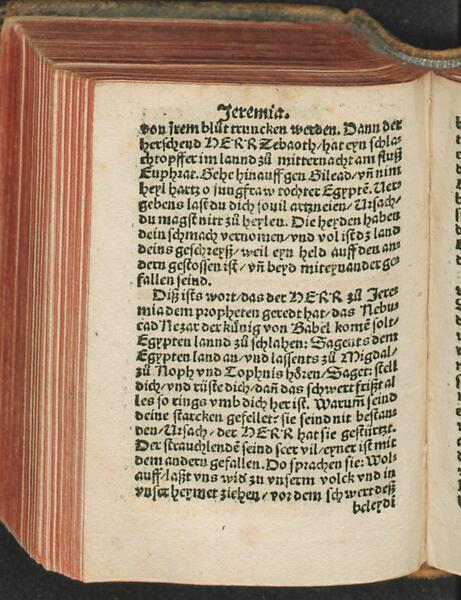 Jeremia.
von jrem blůt truncken werden. Dann der
herschend HERR Zebaoth/hat eyn schla-
chtopffer im lannd zů mitternacht am fluß
Euphrat. Gehe hinauff gen Gilead/vn̄ nim
heyl hartz o jungfraw tochter Egyptē. Ver
gebens last du dich souil artzneien/Vrsach/
du magst nitt zů heylen. Die heyden haben
dein schmach vernomen/vnd vol ist dz land
deins geschreyß/weil eyn held auff den an-
dern gestossen ist/vn̄ beyd miteynander ge-
fallen seind.
Diß ists wort/das der HERR zů Jere
mia dem propheten geredt hat/das Nebu
cad Nezar der künig von Babel komē solt/
Egypten lannd zů schlahen: Sagents dem
Egypten land an/vnd lassents zů Migdal/
zů Noph vnd Tophnis hören/Saget: stell
dich/vnd rüste dich/dan̄ das schwert frißt al
les so rings vmb dich her ist. Warum̄ seind
deine starcken gefellet? sie seind nit bestan-
den/Vrsach/der HERR hat sie gestürtzt.
Der strauchlendē seind seer vil/eyner ist mit
dem andern gefallen. Do sprachen sie: Wol-
auff/laßt vns wid zů vnserm volck vnd in
vnser heymet ziehen/vor dem schwert deß
beleydi